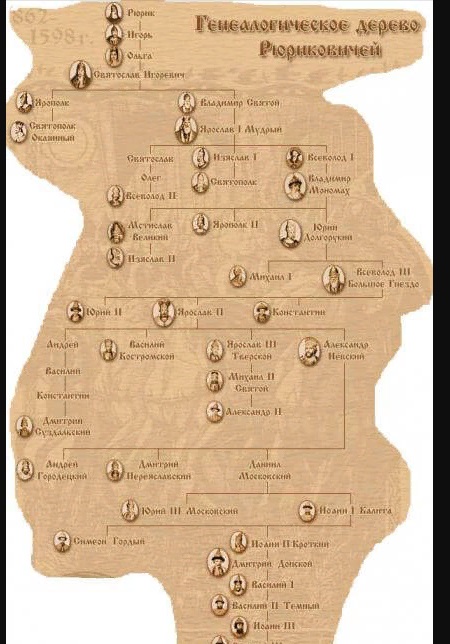 862-
1598г.
Генеалогическое дерево
Рюриковичей
Рюрик
Игорь
Ольга
Святослав Игоревич
Ярополк
Владимир Святой
Святополк
Окаянный
Ярослав I Мудрый
Святослав
Изяслав I
Всеволод I
Олег
Святополк
Владимир
Мономах
Всеволод II
Мстислав
Великий
Ярополк II
Юрий
Долгорукий
Изяслав II
Михаил I
Всеволод III
Большое Гнездо
Юрий II
Ярослав II
Константин
Андрей
Василий
Костромской
Ярослав III
Тверской
Александр
Невский
Василий
Михаил II
Святой
Константин
Александр II
Дмитрий
Суздальский
Андрей
Городецкий
Дмитрий
Переяславский
Даниил
Московский
Юрий III Московский
Иоанн I Калита
Симеон Гордый
Иоанн II Кроткий
Дмитрий Донской
Василий I
Василий II Темный
Иоанн III